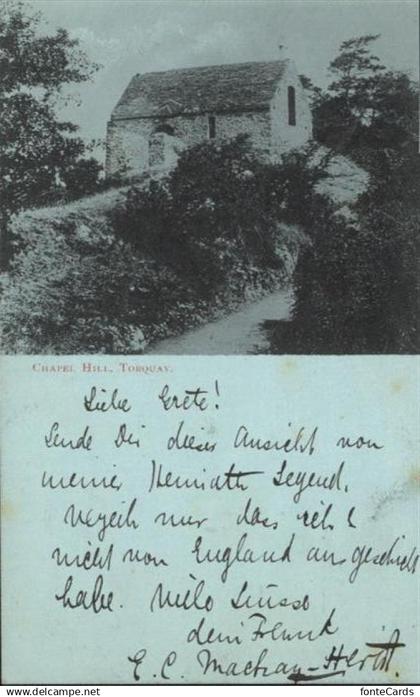 CHAPEL HILL, TORQUAY.
Liebe Grete!
Sende Dir dieses Ansicht von
meiner Heimath Gegend.
Verzeih nur dass ich
nicht von England aus geschickt
habe. Viele Grüsse
dein Freund
E. C.
www.fontecards.com © FonteCards